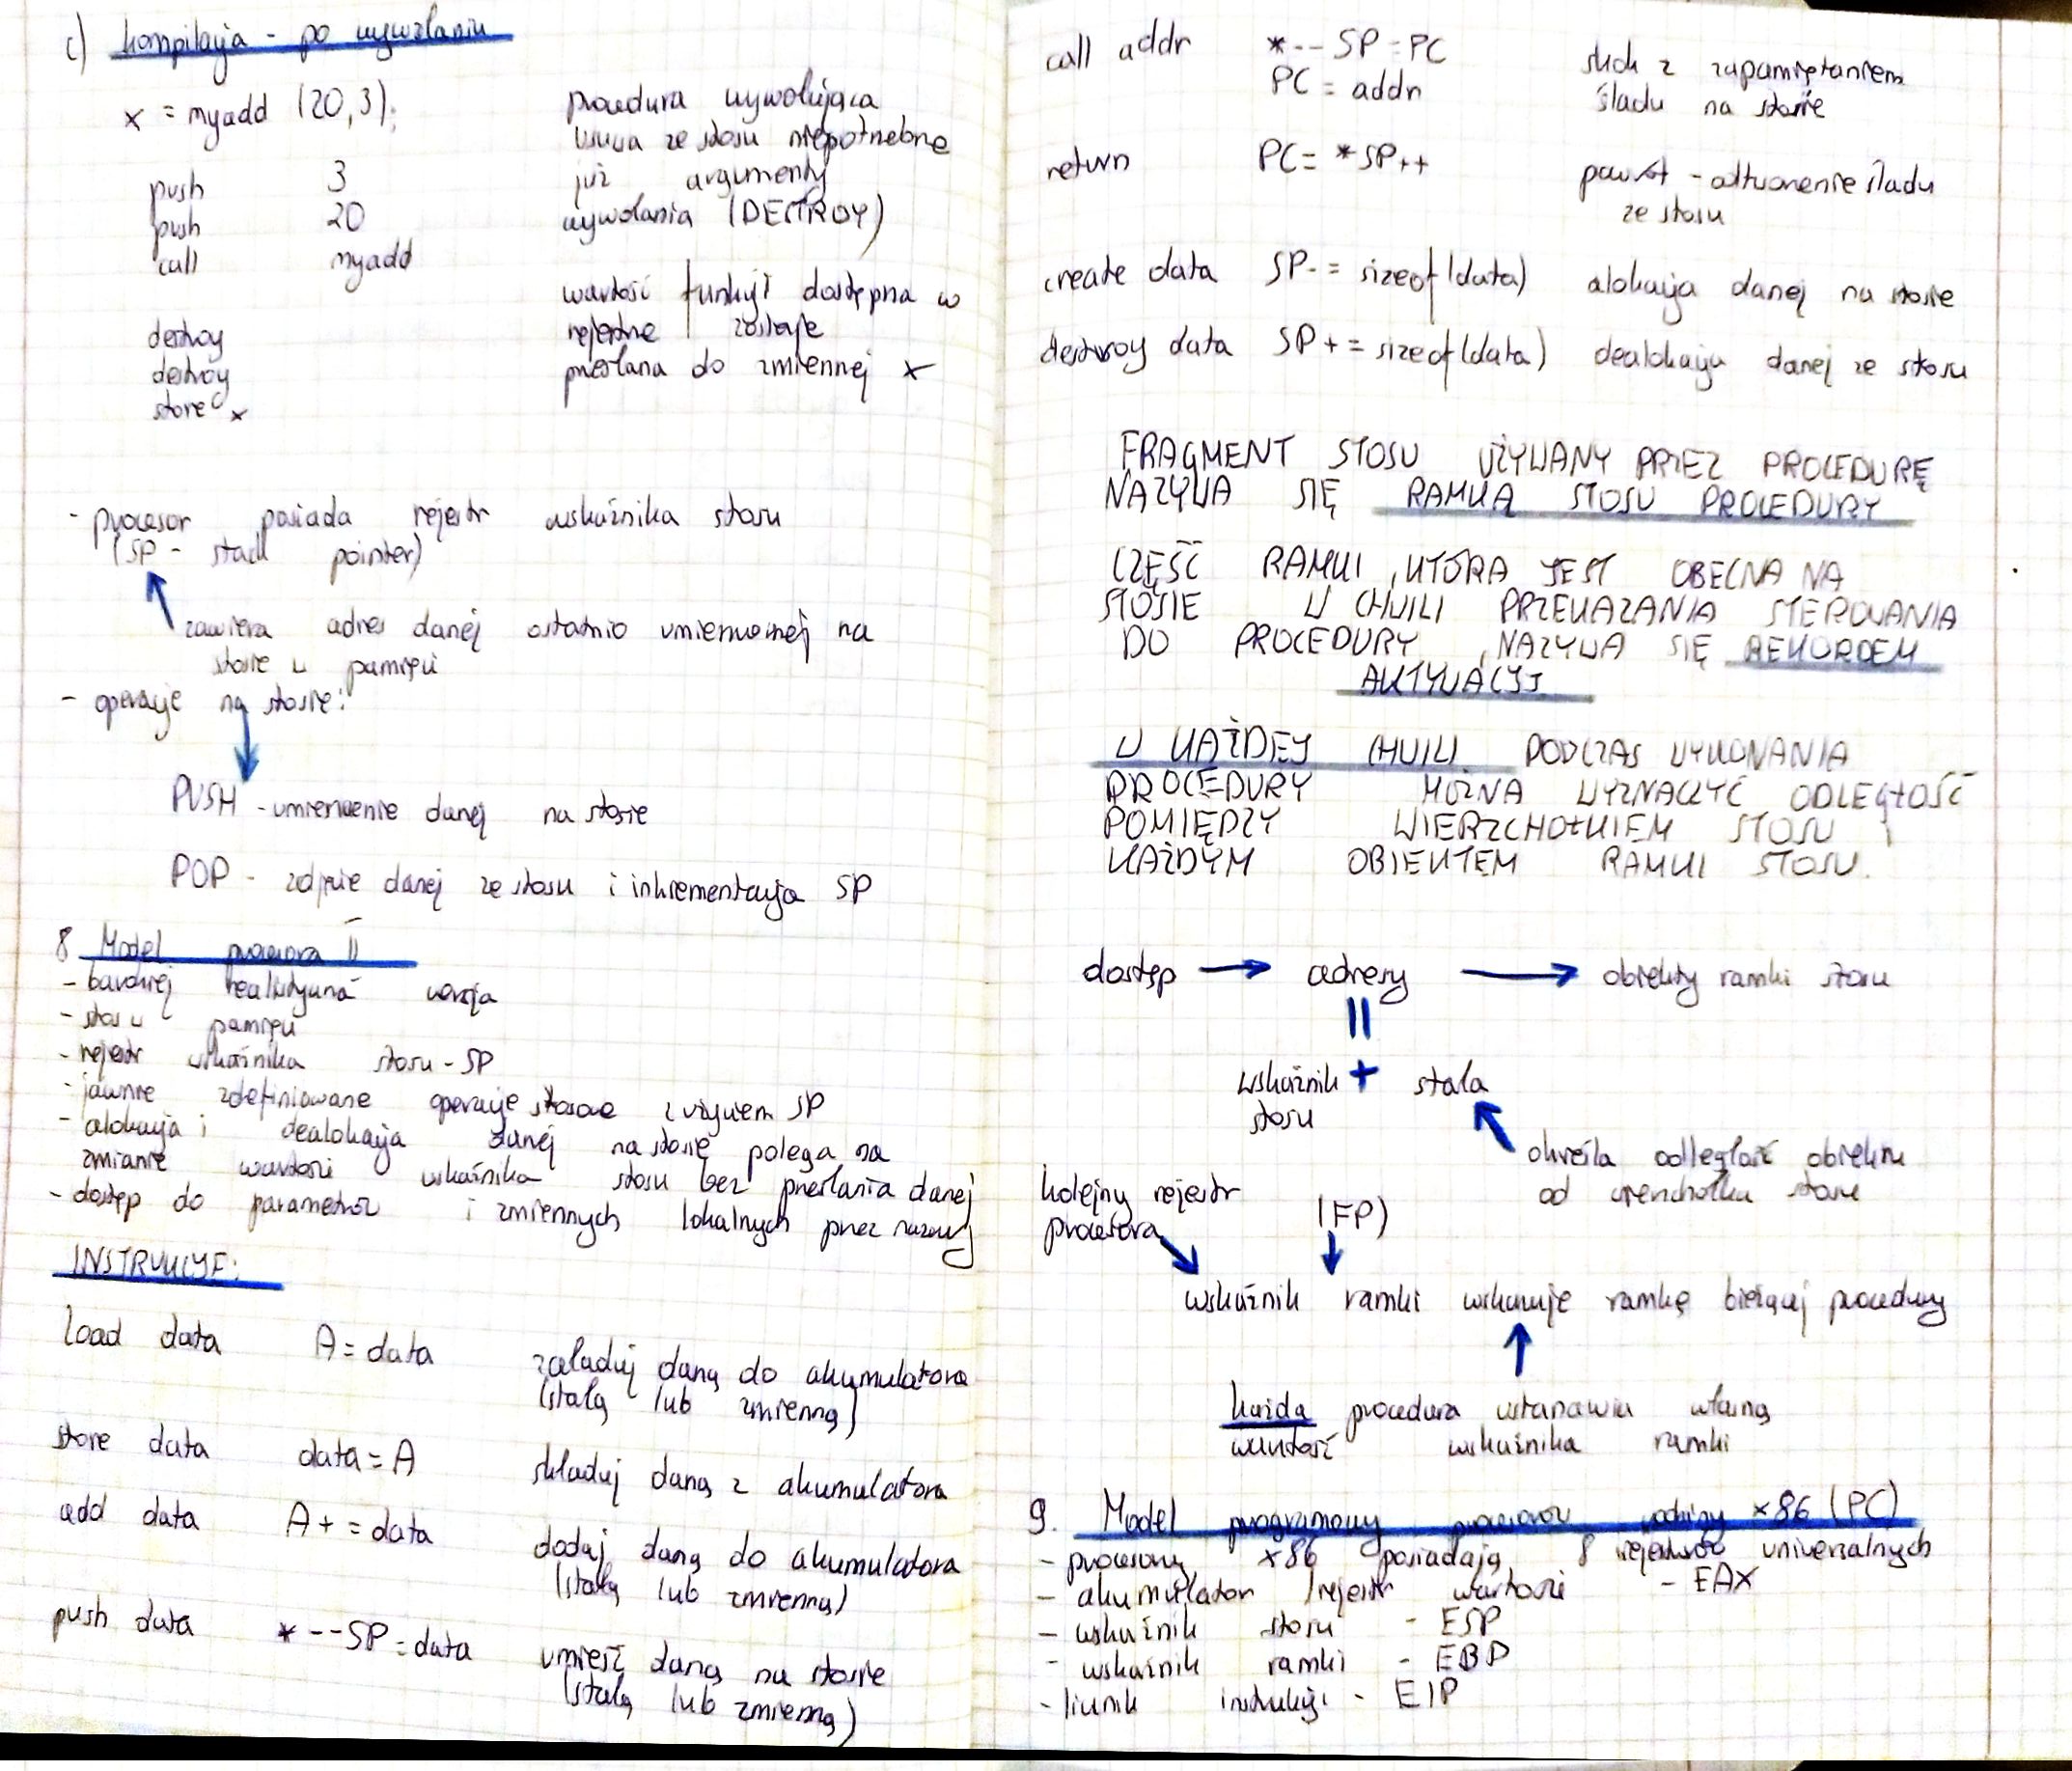 c) kompilacja - po wywołaniu
x = myadd (20,3);
push 3
push 20
call myadd
destroy
destroy
store x
procedura wywołująca
usuwa ze stosu niepotrzebne
już argumenty
wywołania (DESTROY)
wartość funkcji dostępna w
rejestrze zostaje
przesłana do zmiennej x
- procesor posiada rejestr wskaźnika stosu
(SP - stack pointer)
zawiera adres danej ostatnio umieszczonej na
stosie w pamięci
- operacje na stosie:
PUSH - umieszczenie danej na stosie
POP - zdjęcie danej ze stosu i inkrementacja SP
8 Model procesora II
- bardziej realistyczna wersja
- stos w pamięci
- rejestr wskaźnika stosu - SP
- jawnie zdefiniowane operacje stosowe z użyciem SP
- alokacja i dealokacja danej na stosie polega na
zmianie wartości wskaźnika stosu bez przesłania danej
- dostęp do parametrów i zmiennych lokalnych przez nazwy
INSTRUKCJE:
load data A = data załaduj daną do akumulatora
(stałą lub zmienną)
store data data = A składuj daną z akumulatora
add data A + = data dodaj daną do akumulatora
(stałą lub zmienną)
push data * -- SP = data umieść daną na stosie
(stałą lub zmienną)
call addr * -- SP = PC skok z zapamiętaniem
PC = addr śladu na stosie
return PC = * SP++ powrót - odtworzenie śladu
ze stosu
create data SP - = sizeof(data) alokacja danej na stosie
destroy data SP + = sizeof(data) dealokacja danej ze stosu
FRAGMENT STOSU UŻYWANY PRZEZ PROCEDURĘ
NAZYWA SIĘ RAMKĄ STOSU PROCEDURY
CZĘŚĆ RAMKI, KTÓRA JEST OBECNA NA
STOSIE W CHWILI PRZEKAZANIA STEROWANIA
DO PROCEDURY, NAZYWA SIĘ REKORDEM
AKTYWACJI
W KAŻDEJ CHWILI PODCZAS WYKONANIA
PROCEDURY MOŻNA WYZNACZYĆ ODLEGŁOŚĆ
POMIĘDZY WIERZCHOŁKIEM STOSU I
KAŻDYM OBIEKTEM RAMKI STOSU.
dostęp → adresy → obiekty ramki stosu
=
wskaźnik + stała
stosu
określa odległość obiektu
od wierzchołka stosu
kolejny rejestr
procesora
(FP)
wskaźnik ramki wskazuje ramkę bieżącej procedury
każda procedura ustanawia własną
wartość wskaźnika ramki
9. Model programowy procesorów rodziny x86 (PC)
- procesory x86 posiadają 8 rejestrów uniwersalnych
- akumulator / rejestr wartości - EAX
- wskaźnik stosu - ESP
- wskaźnik ramki - EBP
- licznik instrukcji - EIP